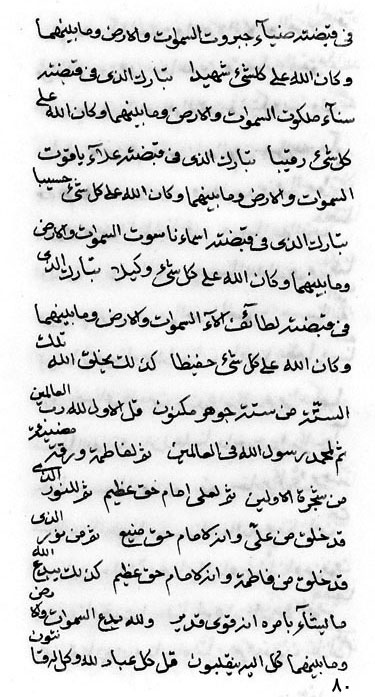 فی قبضته ضیآء جبروت السموات والارض وما بینهما
وکان الله علی کلشئ شهیدا تبارک الذی فی قبضته
سنآء ملکوت السموات والارض وما بینهما وکان الله علی
کل شئ رقیبا تبارک الذی فی قبضته علاء یاقوت
السموات والارض وما بینهما وکان الله علی کل شئ حسیبا
تبارک الذی فی قبضته اسماء ناسوت السموات والارض
وما بینهما وکان الله علی کل شئ وکیلا تبارک الذی
فی قبضته لطائف الآء السموات والارض وما بینهما
وکان الله علی کل شئ حفیظا کذلک یخلق الله تلک
الستّة من ستة جوهر مکنون قل الاول لله رب العالمین
ثم لمحمد رسول الله فی العالمین ثم لفاطمة ورقة
من شجرة الاولین ثم لعلی امام حق عظیم ثم للنور الذی
قد خلق من علیّ وانه کامام حق منیع ثم من نور الذی
قد خلق من فاطمة وانه کامام حق عظیم کذلک یبدع الله
ما یشآء بامره انه قوی قدیر ولله یبدع السموات والارض
وما بینهما کل الیه ینقلبون قل کل عباد لله وکل له قانتون
٨٠